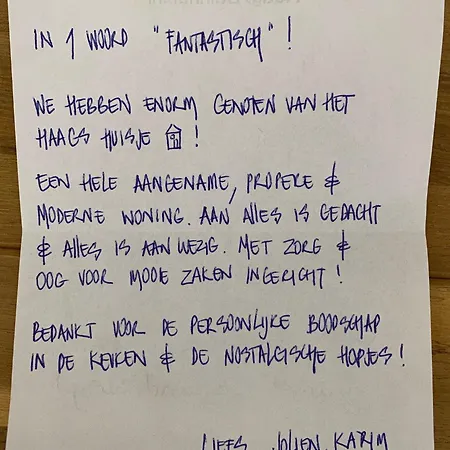 IN 1 WOORD "FANTASTISCH"!
WE HEBBEN ENORM GENOTEN VAN HET
HAAGS HUISJE !
EEN HELE AANGENAME, PROPERE &
MODERNE WONING. AAN ALLES IS GEDACHT
& ALLES IS AANWEZIG. MET ZORG &
OOG VOOR MOOIE ZAKEN INGERICHT!
BEDANKT VOOR DE PERSOONLIJKE BOODSCHAP
IN DE KEUKEN & DE NOSTALGISCHE HOPJES!
LIEFS, JOLIEN, KARIM